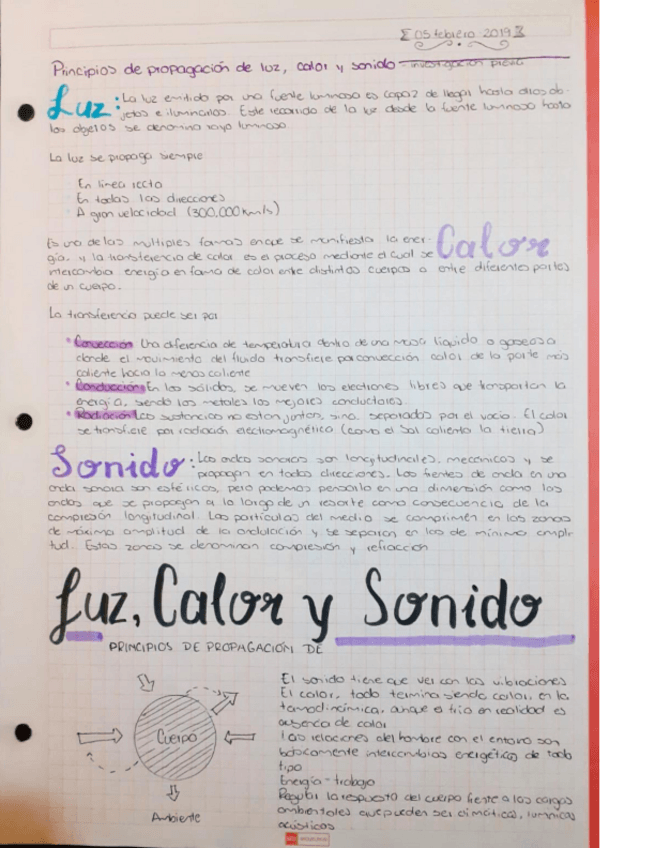 05 febrero 2019
Principios de propagación de luz, calor y sonido - investigación previa
Luz: La luz emitida por una fuente luminosa es capaz de llegar hasta otros ob-
jetos e iluminarlos. Este recorrido de la luz desde la fuente luminosa hasta
los objetos se denomina rayo luminoso
La luz se propaga siempre
En línea recta
En todas las direcciones
A gran velocidad (300.000 km/s)
Calor
Es una de las multiples formas en que se manifiesta la ener-
gía, y la transferencia de calor es el proceso mediante el cual se
intercambia energía en forma de calor entre distintos cuerpos o entre diferentes partes
de un cuerpo.
La transferencia puede ser por
• Convección Una diferencia de temperatura dentro de una masa líquida o gaseosa
donde el movimiento del fluido transfiere por convección calor de la parte más
caliente hacia la menos caliente
• Conducción En los sólidos, se mueven los electrones libres que transportan la
energía, siendo los metales los mejores conductores.
• Radiación Las sustancias no estan juntas, sino separadas por el vacío. El calor
se transfiere por radiación electromagnética (como el Sol calienta la tierra)
Sonido: Las ondas sonoras son longitudinales, mecánicas y se
propagan en todas direcciones. Los frentes de onda en una
onda sonora son esféricos, pero podemos pensarlo en una dimensión como las
ondas que se propagan a lo largo de un resorte como consecuencia de la
compresión longitudinal. Las partículas del medio se comprimen en las zonas
de máxima amplitud de la ondulación y se separan en las de mínima ampli-
tud. Estas zonas se denominan compresión y refracción
Luz, Calor y Sonido
PRINCIPIOS DE PROPAGACIÓN DE
Cuerpo
Ambiente
El sonido tiene que ver con las vibraciones
El calor, todo termina siendo calor, en la
termodinámica, aunque el frío en realidad es
ausencia de calor
Las relaciones del hombre con el entorno son
básicamente intercambios energéticos de todo
tipo
Energía - trabajo
Regular la respuesta del cuerpo frente a las cargas
ambientales que pueden ser climáticas, lumínicas
acústicas